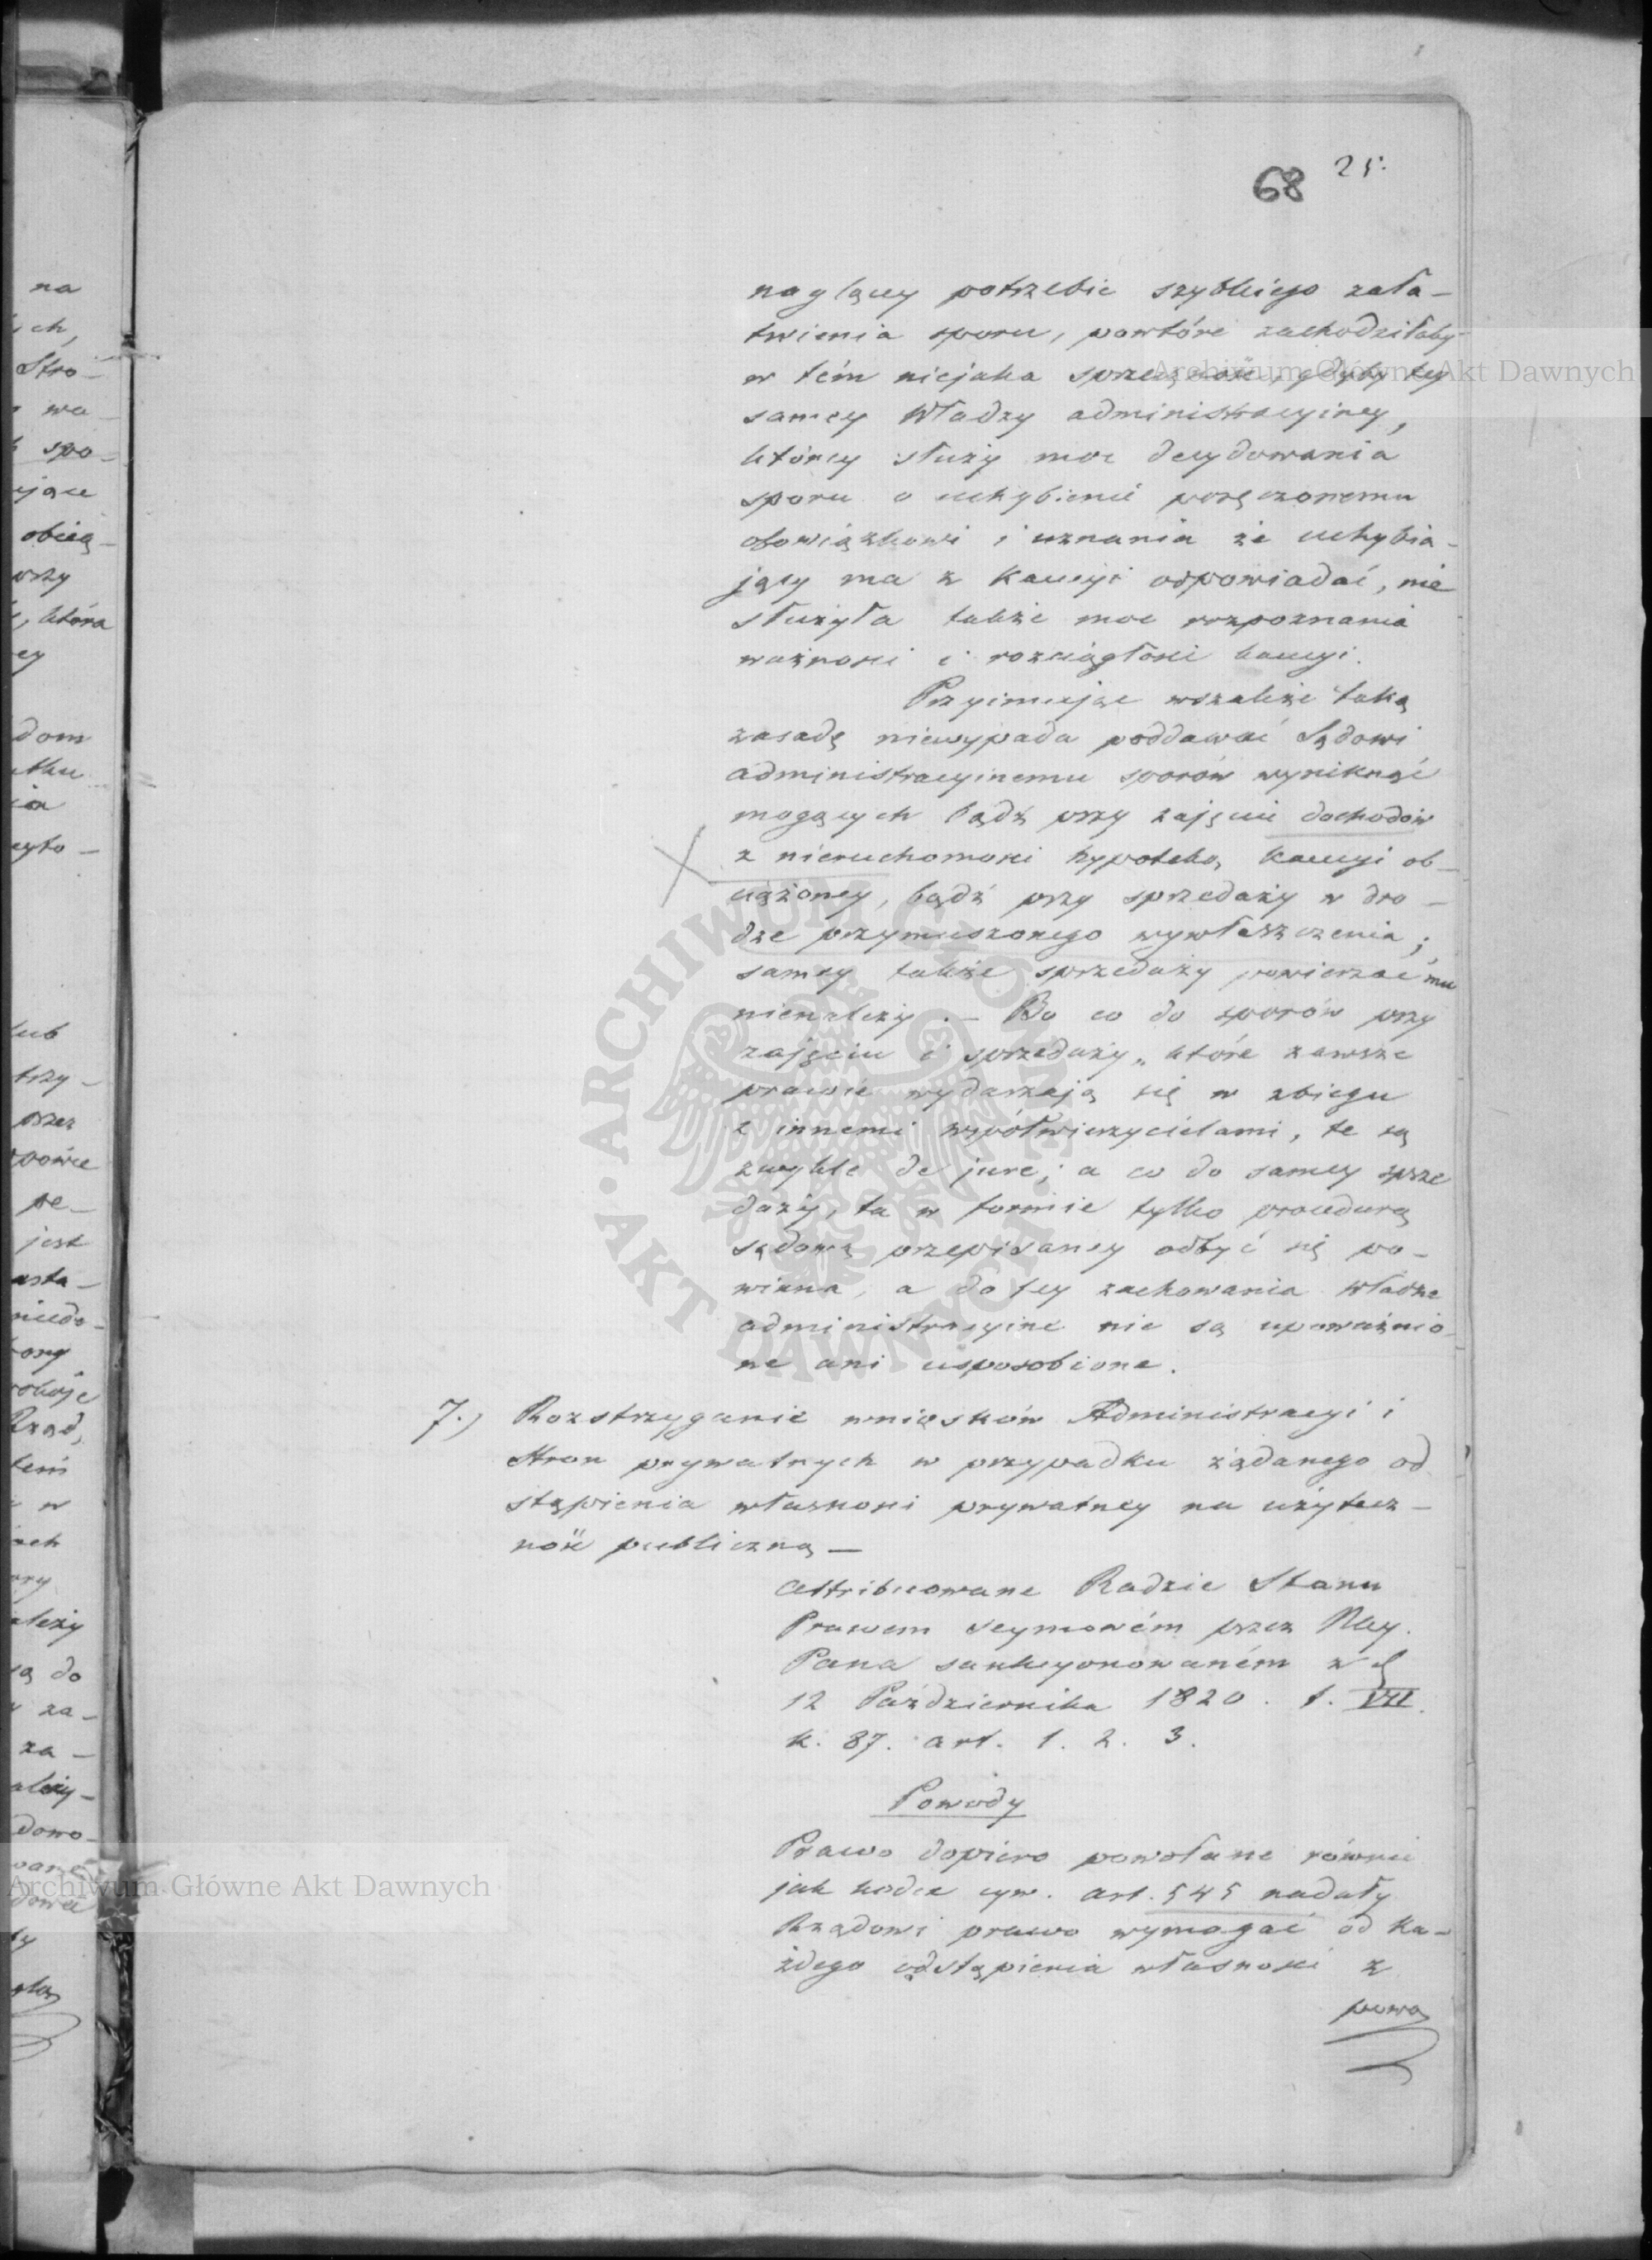 68 25.
naglącey potrzebie szybkiego zała-
twienia sporu, powtóre zachodziłaby
w tém niejaka sprzeczność, gdyby tey
samey Władzy administracyiney,
którey służy moc decydowania
sporu o uchybienie poręczonemu
obowiązkowi i uznania że uchybia-
jący ma z Kaucyi odpowiadać, nie
służyła także moc rozpoznania
ważności i rozciągłości kaucyi.
Przyimując wszakże taką
zasadę niewypada poddawać Sądowi
administracyinemu sporów wyniknąć
mogących bądź przy zajęciu dochodów
z nieruchomości hypoteką Kaucyi ob-
ciążoney, bądź przy sprzedaży w dro-
dze przymuszonego wywłaszczenia;
samey także sprzedaży powierzać mu
nienależy. – Bo co do sporów przy
zajęciu i sprzedaży, które zawsze
prawie wydarzają się w zbiegu
z innemi współwierzycielami, te są
zwykle de jure; a co do samey sprze
daży, ta w formie tylko procedurą
sądową przepisaney odbyć się po-
winna, a do jey zachowania władze
administracyine nie są upoważnio-
ne ani usposobione.
7.) Rozstrzyganie wniosków Administracyi i
Stron prywatnych w przypadku żądanego od
stąpienia własności prywatney na użytecz-
ność publiczną –
Attribuowane Radzie Stanu
Prawem seymowém przez Nay.
Pana sankcyonowaném z d
12 Października 1820. t. VII.
k. 87. art. 1. 2. 3.
Powody
Prawo dopiero powołane równie
jak kodex cyw. art. 545 nadały
Rządowi prawo wymagać od ka-
żdego odstąpienia własności z
powo
na
ch,
Stro-
wa-
spo-
obcią-
przy
, która
ey
dom
ia
lub
trzy-
przez
pe-
jest
Rząd,
w
ależy
są do
za-
za-
dowo-
Archiwum Główne Akt Dawnych
ARCHIWUM GŁÓWNE · AKT DAWNYCH ·
Archiwum Główne Akt Dawnych